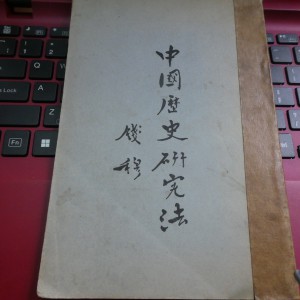 中國歷史研究法
錢穆
Fn